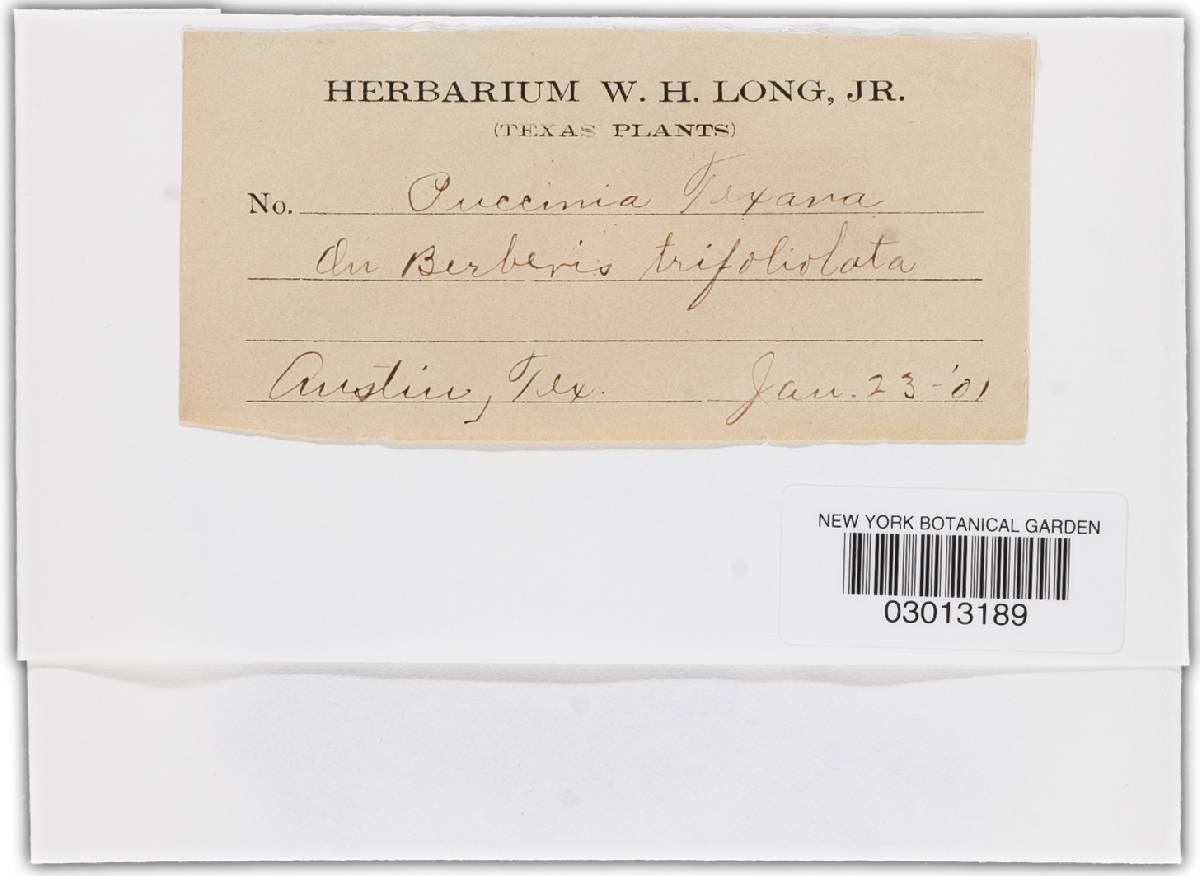 HERBARIUM W. H. LONG, JR.
(TEXAS PLANTS)
No. Puccinia Texana
On Berberis trifoliolata
Austin, Tex. Jan. 23-'01
NEW YORK BOTANICAL GARDEN
03013189